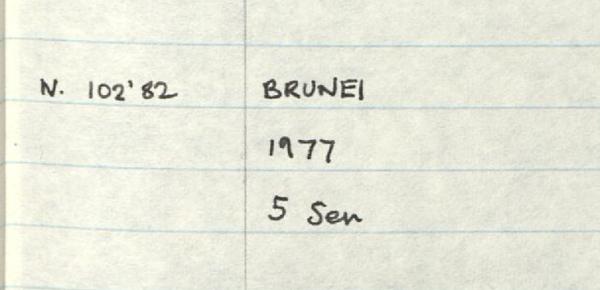 N. 102'82 BRUNEI
1977
5 Sen